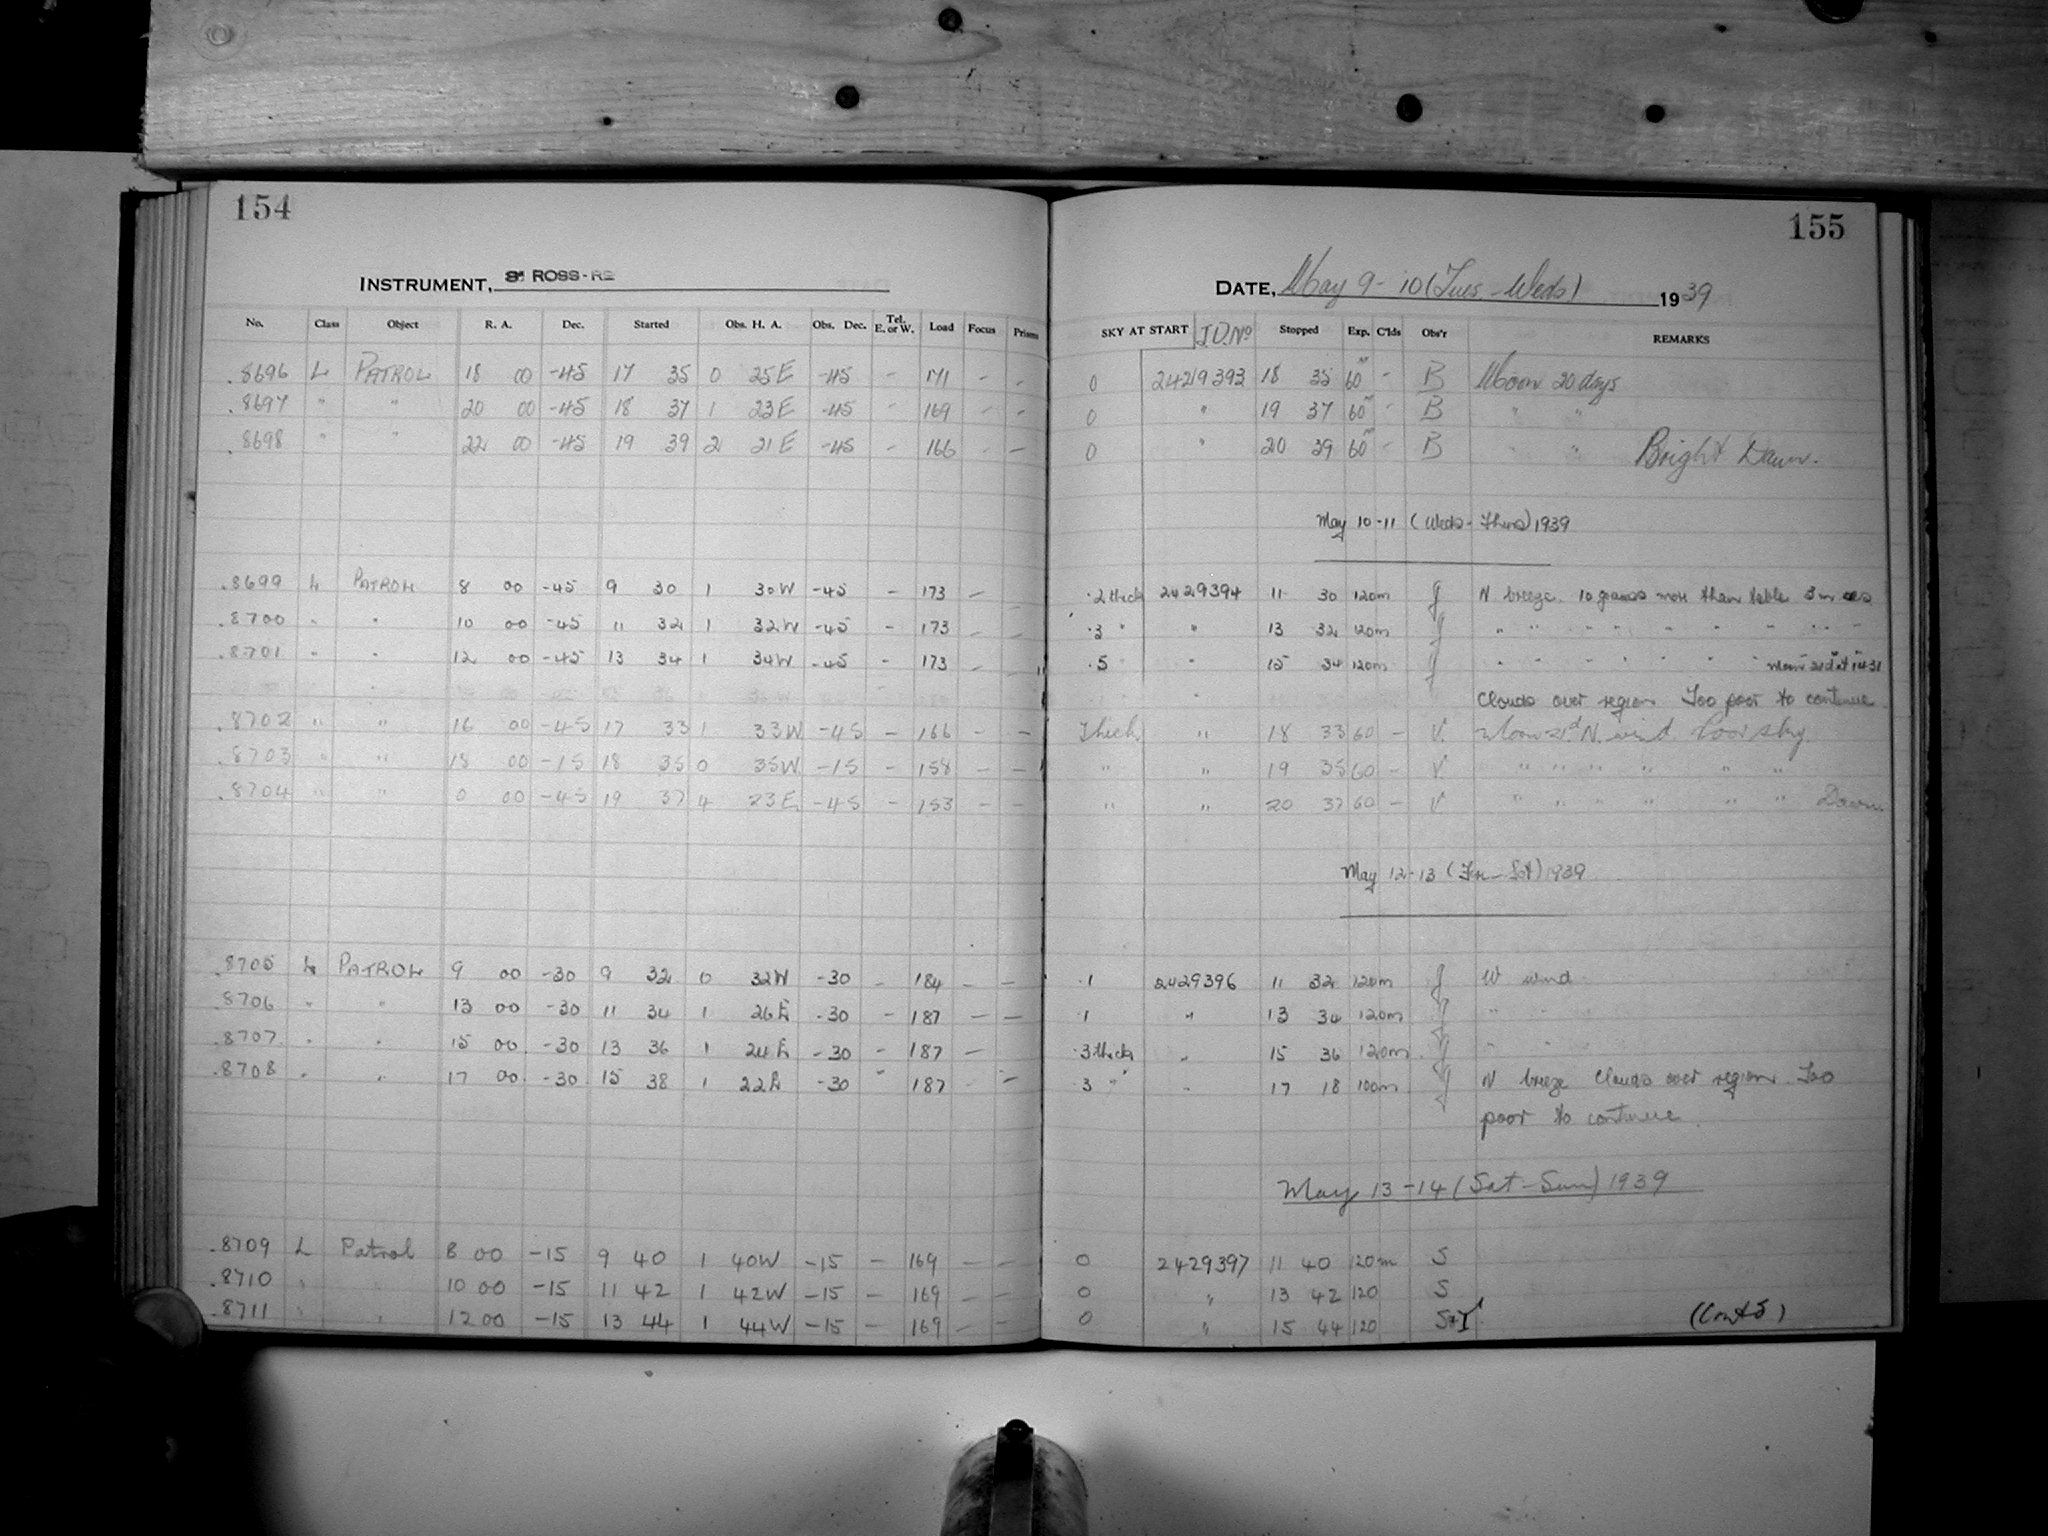 154
INSTRUMENT, ROSS-
No. Class Object R. A. Dec. Started Obs. H. A. Obs. Dec. Tel. E. or W. Load Focus Prisms
.8696 L PATROL 18 00 -45 17 35 0 25E -45 - 171 - -
.8697 " " 20 00 -45 18 37 1 23E -45 - 169 - -
.8698 " " 22 00 -45 19 39 2 21E -45 - 166 - -
.8699 L PATROL 8 00 -45 9 30 1 30W -45 - 173 -
.8700 " " 10 00 -45 11 32 1 32W -45 - 173 - -
.8701 " " 12 00 -45 13 34 1 34W -45 - 173 - -
.8702 " " 16 00 -45 17 33 1 33W -45 - 166 - -
.8703 " " 18 00 -15 18 35 0 35W -15 - 158 - -
.8704 " " 0 00 -45 19 37 4 23E -45 - 153 - -
.8705 L PATROL 9 00 -30 9 32 0 32W -30 - 184 - -
.8706 " " 13 00 -30 11 34 1 26E -30 - 187 - -
.8707 " " 15 00 -30 13 36 1 24E -30 - 187 -
.8708 " " 17 00 -30 15 38 1 22E -30 " 187 - -
.8709 L Patrol 8 00 -15 9 40 1 40W -15 - 169 - -
.8710 " " 10 00 -15 11 42 1 42W -15 - 169 - -
.8711 " " 12 00 -15 13 44 1 44W -15 - 169 - -
155
DATE, May 9-10 (Tues-Weds) 1939
SKY AT START J.D.No Stopped Exp. C'lds Obs'r REMARKS
0 2429393 18 35 60m - B Moon 20 days
0 " 19 37 60m - B " "
0 " 20 39 60m - B " " Bright Dawn.
May 10-11 (Weds-Thurs) 1939
.2 thick 2429394 11 30 120m J N breeze. 10 grams more than table
.3 " " 13 32 120m J
.5 " 15 34 120m J
Clouds over region Too poor to continue
Thick " 18 33 60 - V. Moon 21d N. wind. Poor sky
" " 19 35 60 - V " " " " " "
" " 20 37 60 - V " " " " " " Dawn.
May 12-13 (Fri-Sat) 1939
.1 2429396 11 32 120m J W wind
.1 " 13 34 120m J " "
.3 thick " 15 36 120m J " "
.3 " " 17 18 100m J N breeze Clouds over region. Too
poor to continue.
May 13-14 (Sat-Sun) 1939
0 2429397 11 40 120m S
0 " 13 42 120 S
0 " 15 44 120 (Cont'd)